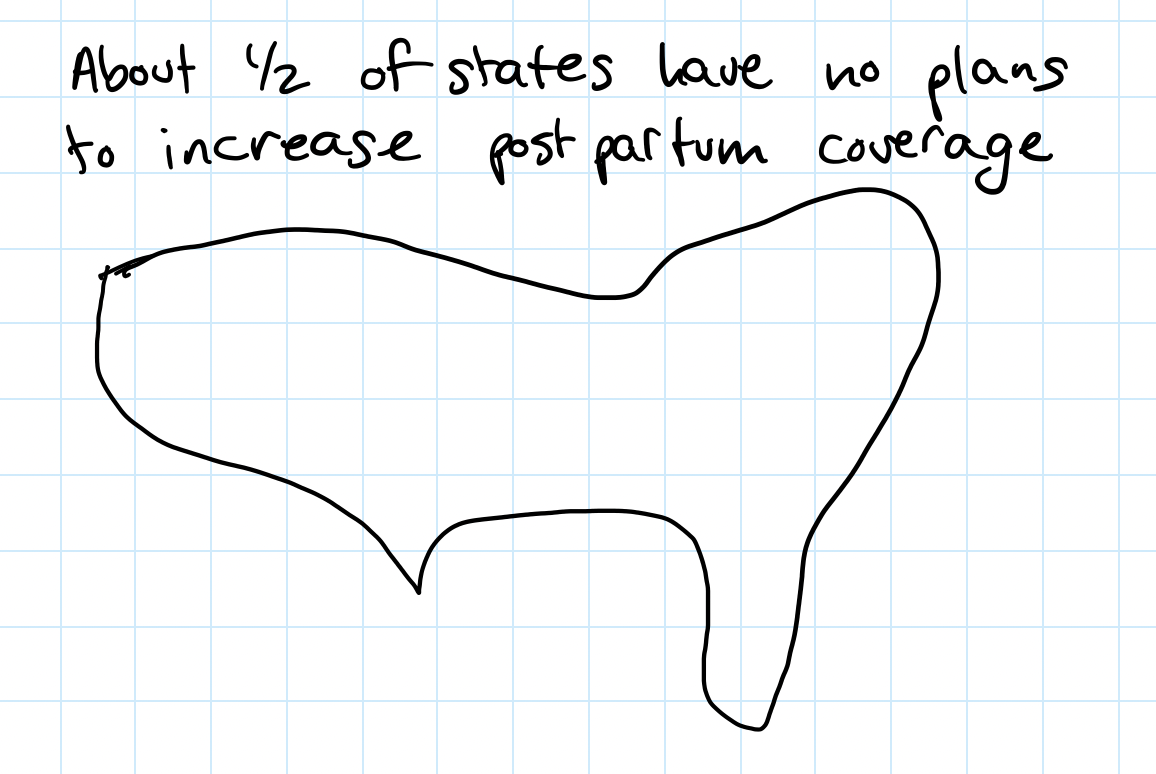 About 1/2 of states have no plans
to increase postpartum coverage